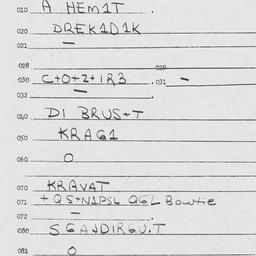 010 A HEM1T .
020 DREK1D1K
021 —
028 029
030 C+O+2+1R3 . 031 -
032 — .
040 D1 BRUS+T
050 KRAG1
060 O
070 KRAVAT
071 +QS+N1PSL QGL Bowtie
072 — .
080 SGAJD1RGU.T
081 O